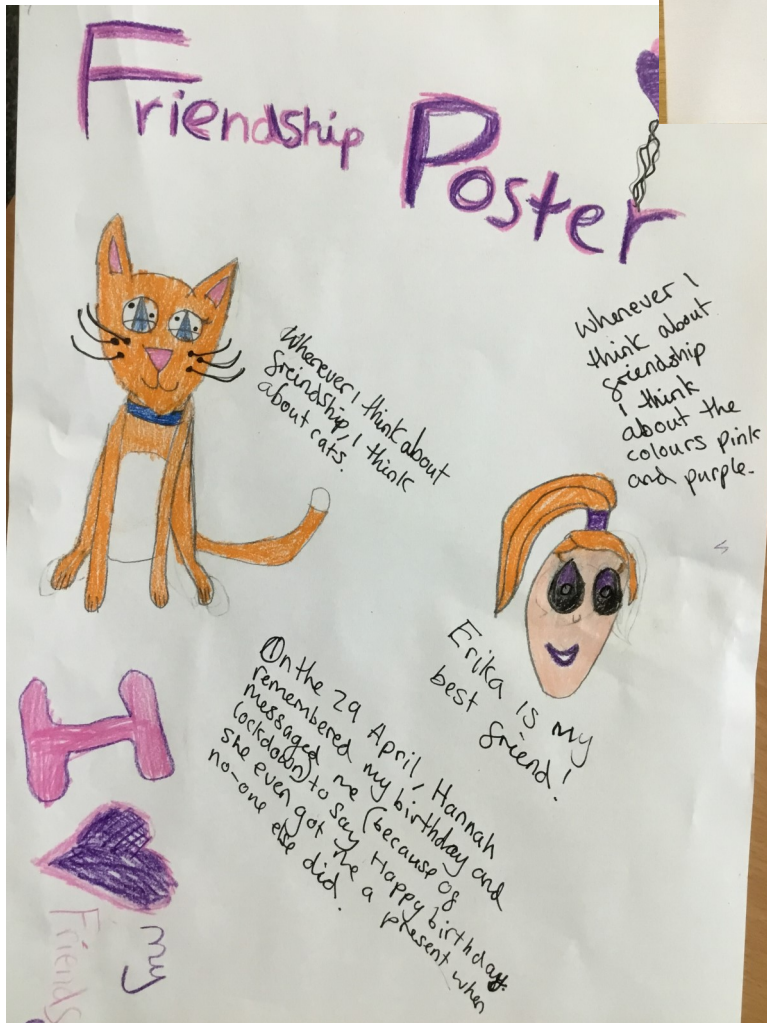 Friendship Poster
Whenever I think about
freindship, I think
about cats.
Whenever I
think about
friendship
I think
about the
colours pink
and purple.
Erika is my
best friend!
On the 29 April, Hannah
remembered my birthday and
messaged me (because of
lockdown) to say Happy birthday.
she even got me a present when
no-one else did.
I
my
Friends